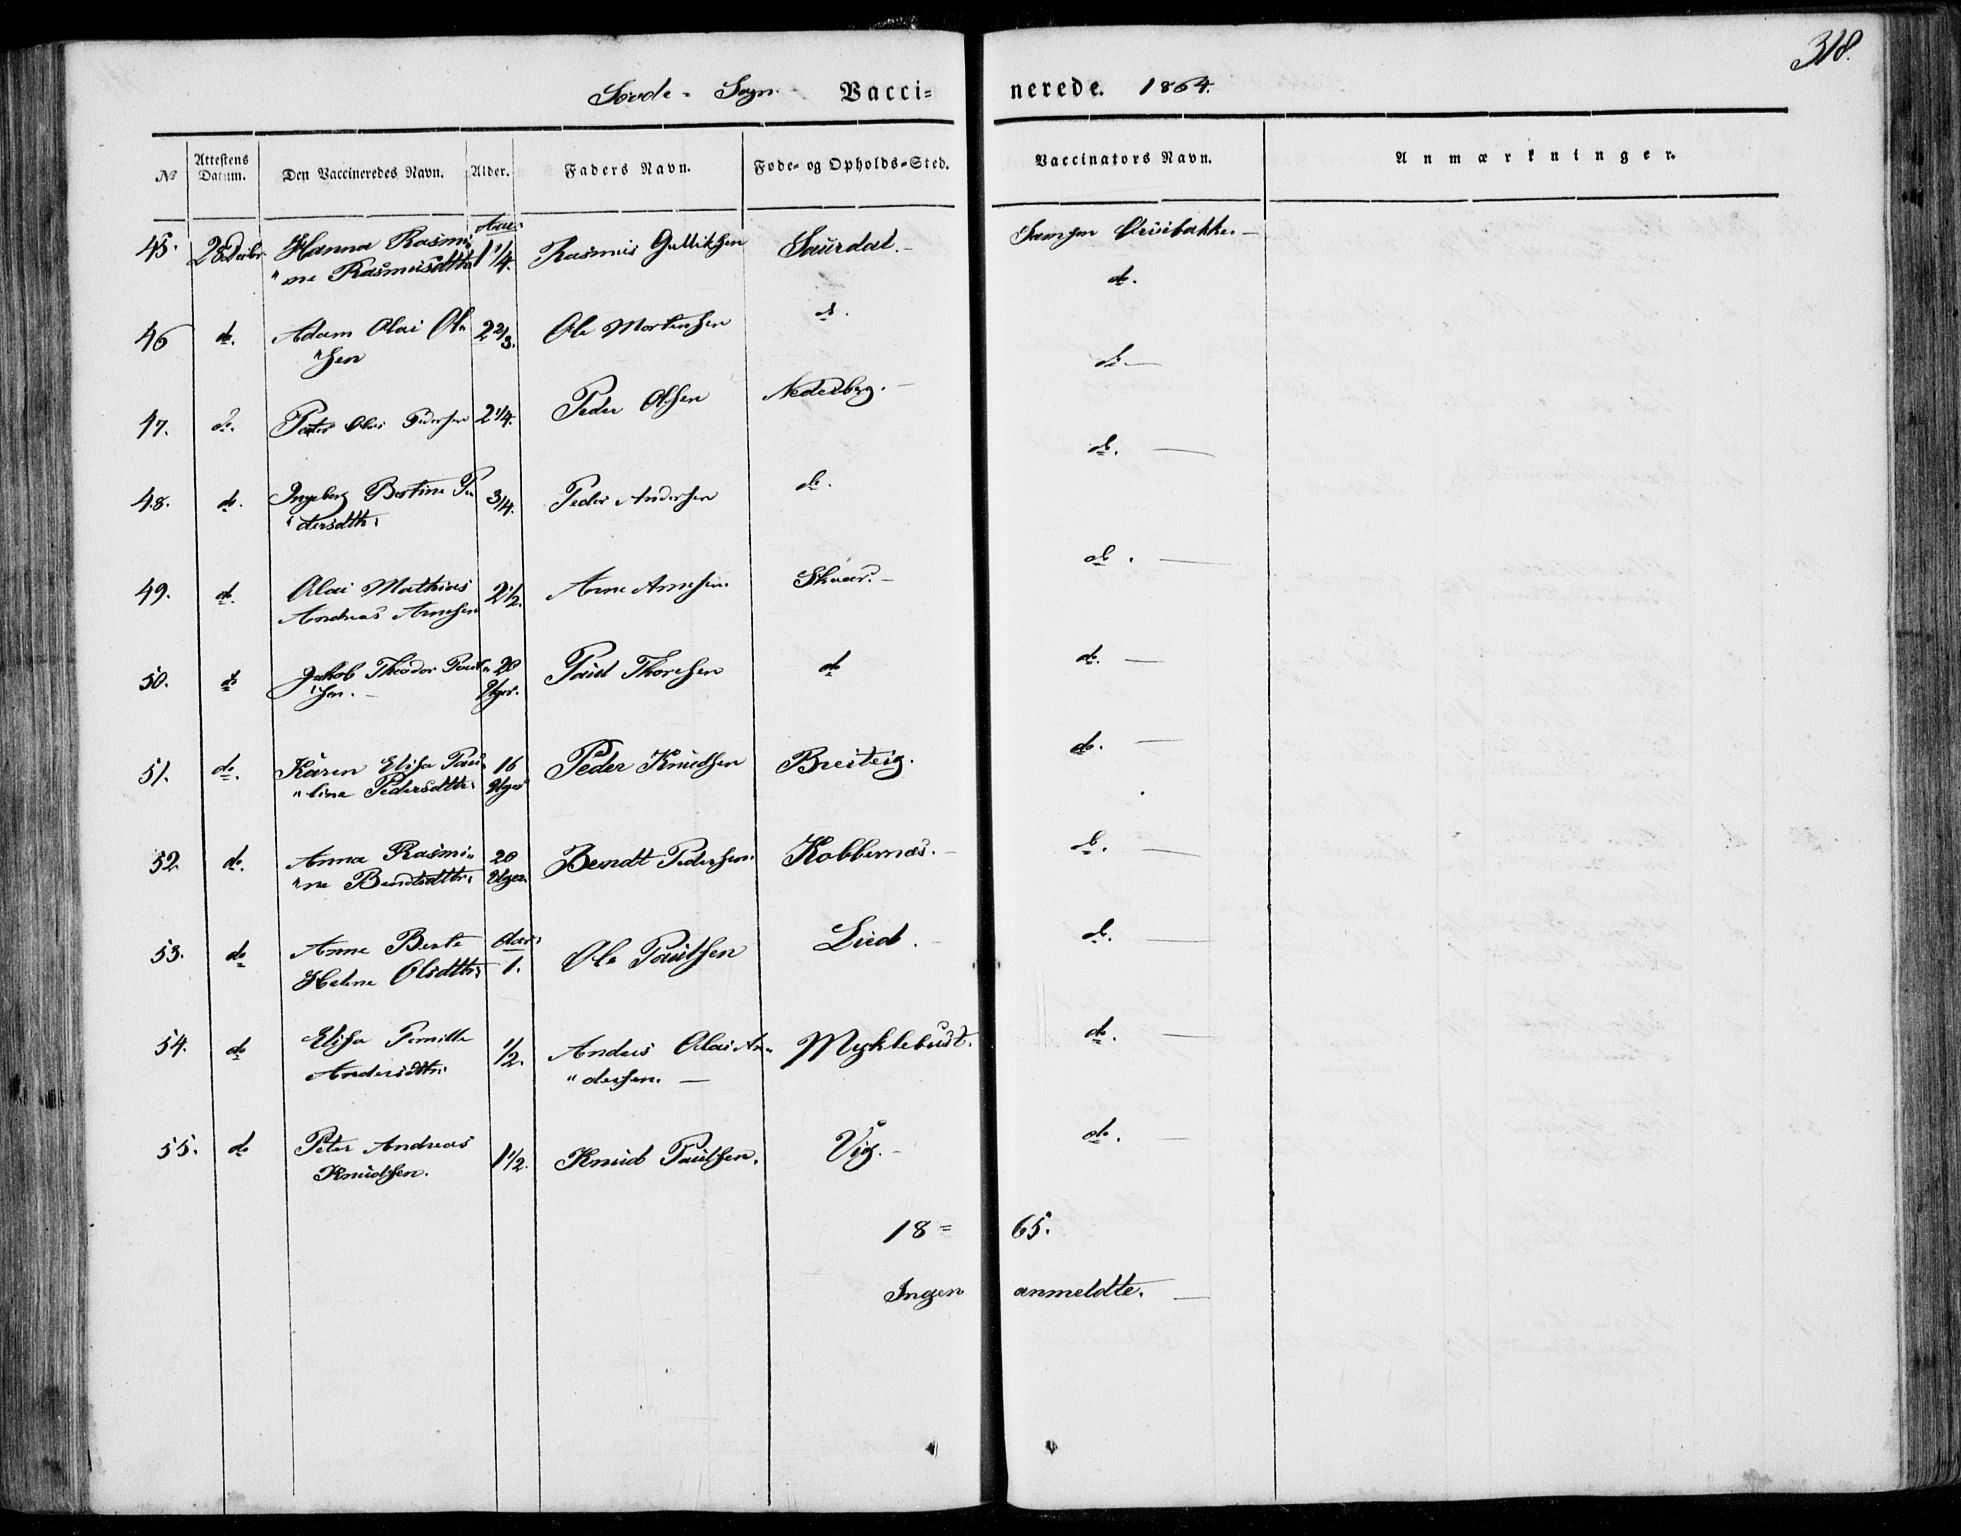 318.
Sovde - Sogn. Vacci= nerede. 1864.
No Attestens Datum. Den Vaccineredes Navn. Alder. Faders Navn. Føde- og Opholds-Sted. Vaccinators Navn. Anmærkninger.
Aar:
45. 28 Hanna Rasmi- 1 1/4. Rasmus Gulliksen Saurdal. — Samson —
"ne Rasmusdtter
46 do. Adam Olai Ol- 2 2/3. Ole Mortensen do. do.
"sen
47. do. Peter Olai Pedersen 2 1/4. Peder Olsen Nederberg. — do —
48. do. Ingeborg Bertine Pe- 3/4. Peder Andersen do. do. —
"dersdtter
49. do. Olai Mathias 2 1/2. Arne Arnesen Skaar. — do. —
Andreas Arnesen
50. do Jakob Theodor Paul- 20 Paul Thoresen do do. —
"sen. — Uger.
51. do. Karen Elisa Pau- 16 Peder Knudsen Breiteig. do. —
"line Pedersdtter Uger
52. do. Anna Rasmi- 20 Bendt Pedersen Kobbernæs. — do. —
"ne Bendtsdtter Uger.
53. do Anne Berte Aar: Ole Paulsen Lied. — do. —
Helene Olsdtter 1.
54. do Elisa Pernille 1/2. Anders Olai An- Myklebust. do. —
Andersdtter "dersen. —
55. do Peter Andreas 1 1/2. Knud Paulsen. Vig. — do. —
Knudsen.
18= 65.
Ingen anmeldte. —